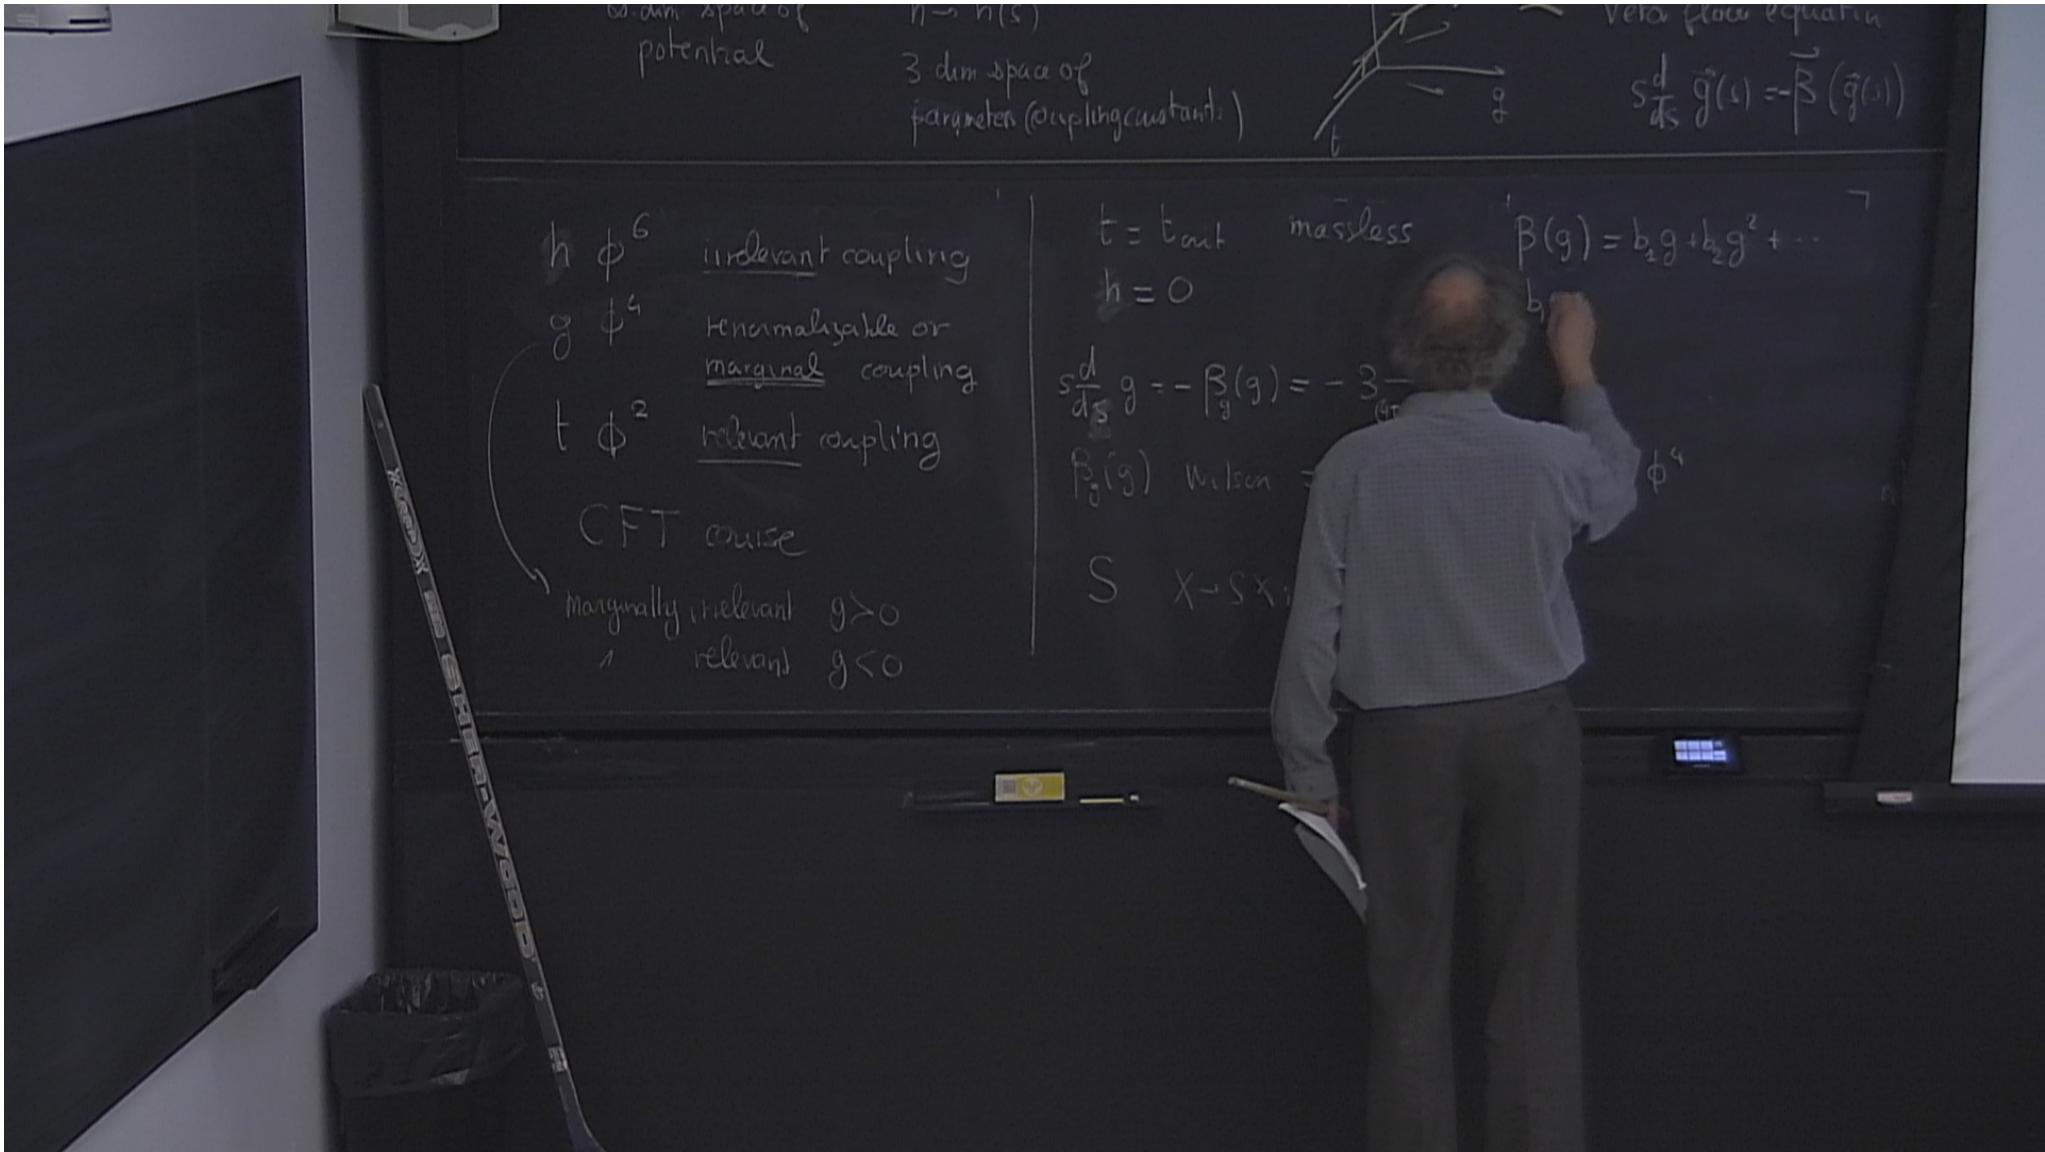 ∞ dim space of
potential
h → h(s)
3 dim space of
parameters (coupling constants)
g
t
flow equation
s d/ds g⃗(s) = -β⃗ (g⃗(s))
h ϕ⁶ irrelevant coupling
g ϕ⁴ renormalizable or
marginal coupling
t ϕ² relevant coupling
CFT course
marginally irrelevant g>0
relevant g<0
t = t massless
h = 0
s d/ds g = - β_g(g) = - 3
β_g(g) Wilson =
ϕ⁴
S x → s x
β(g) = b₁g + b₂g² + ...
b₁
SHER-WOOD